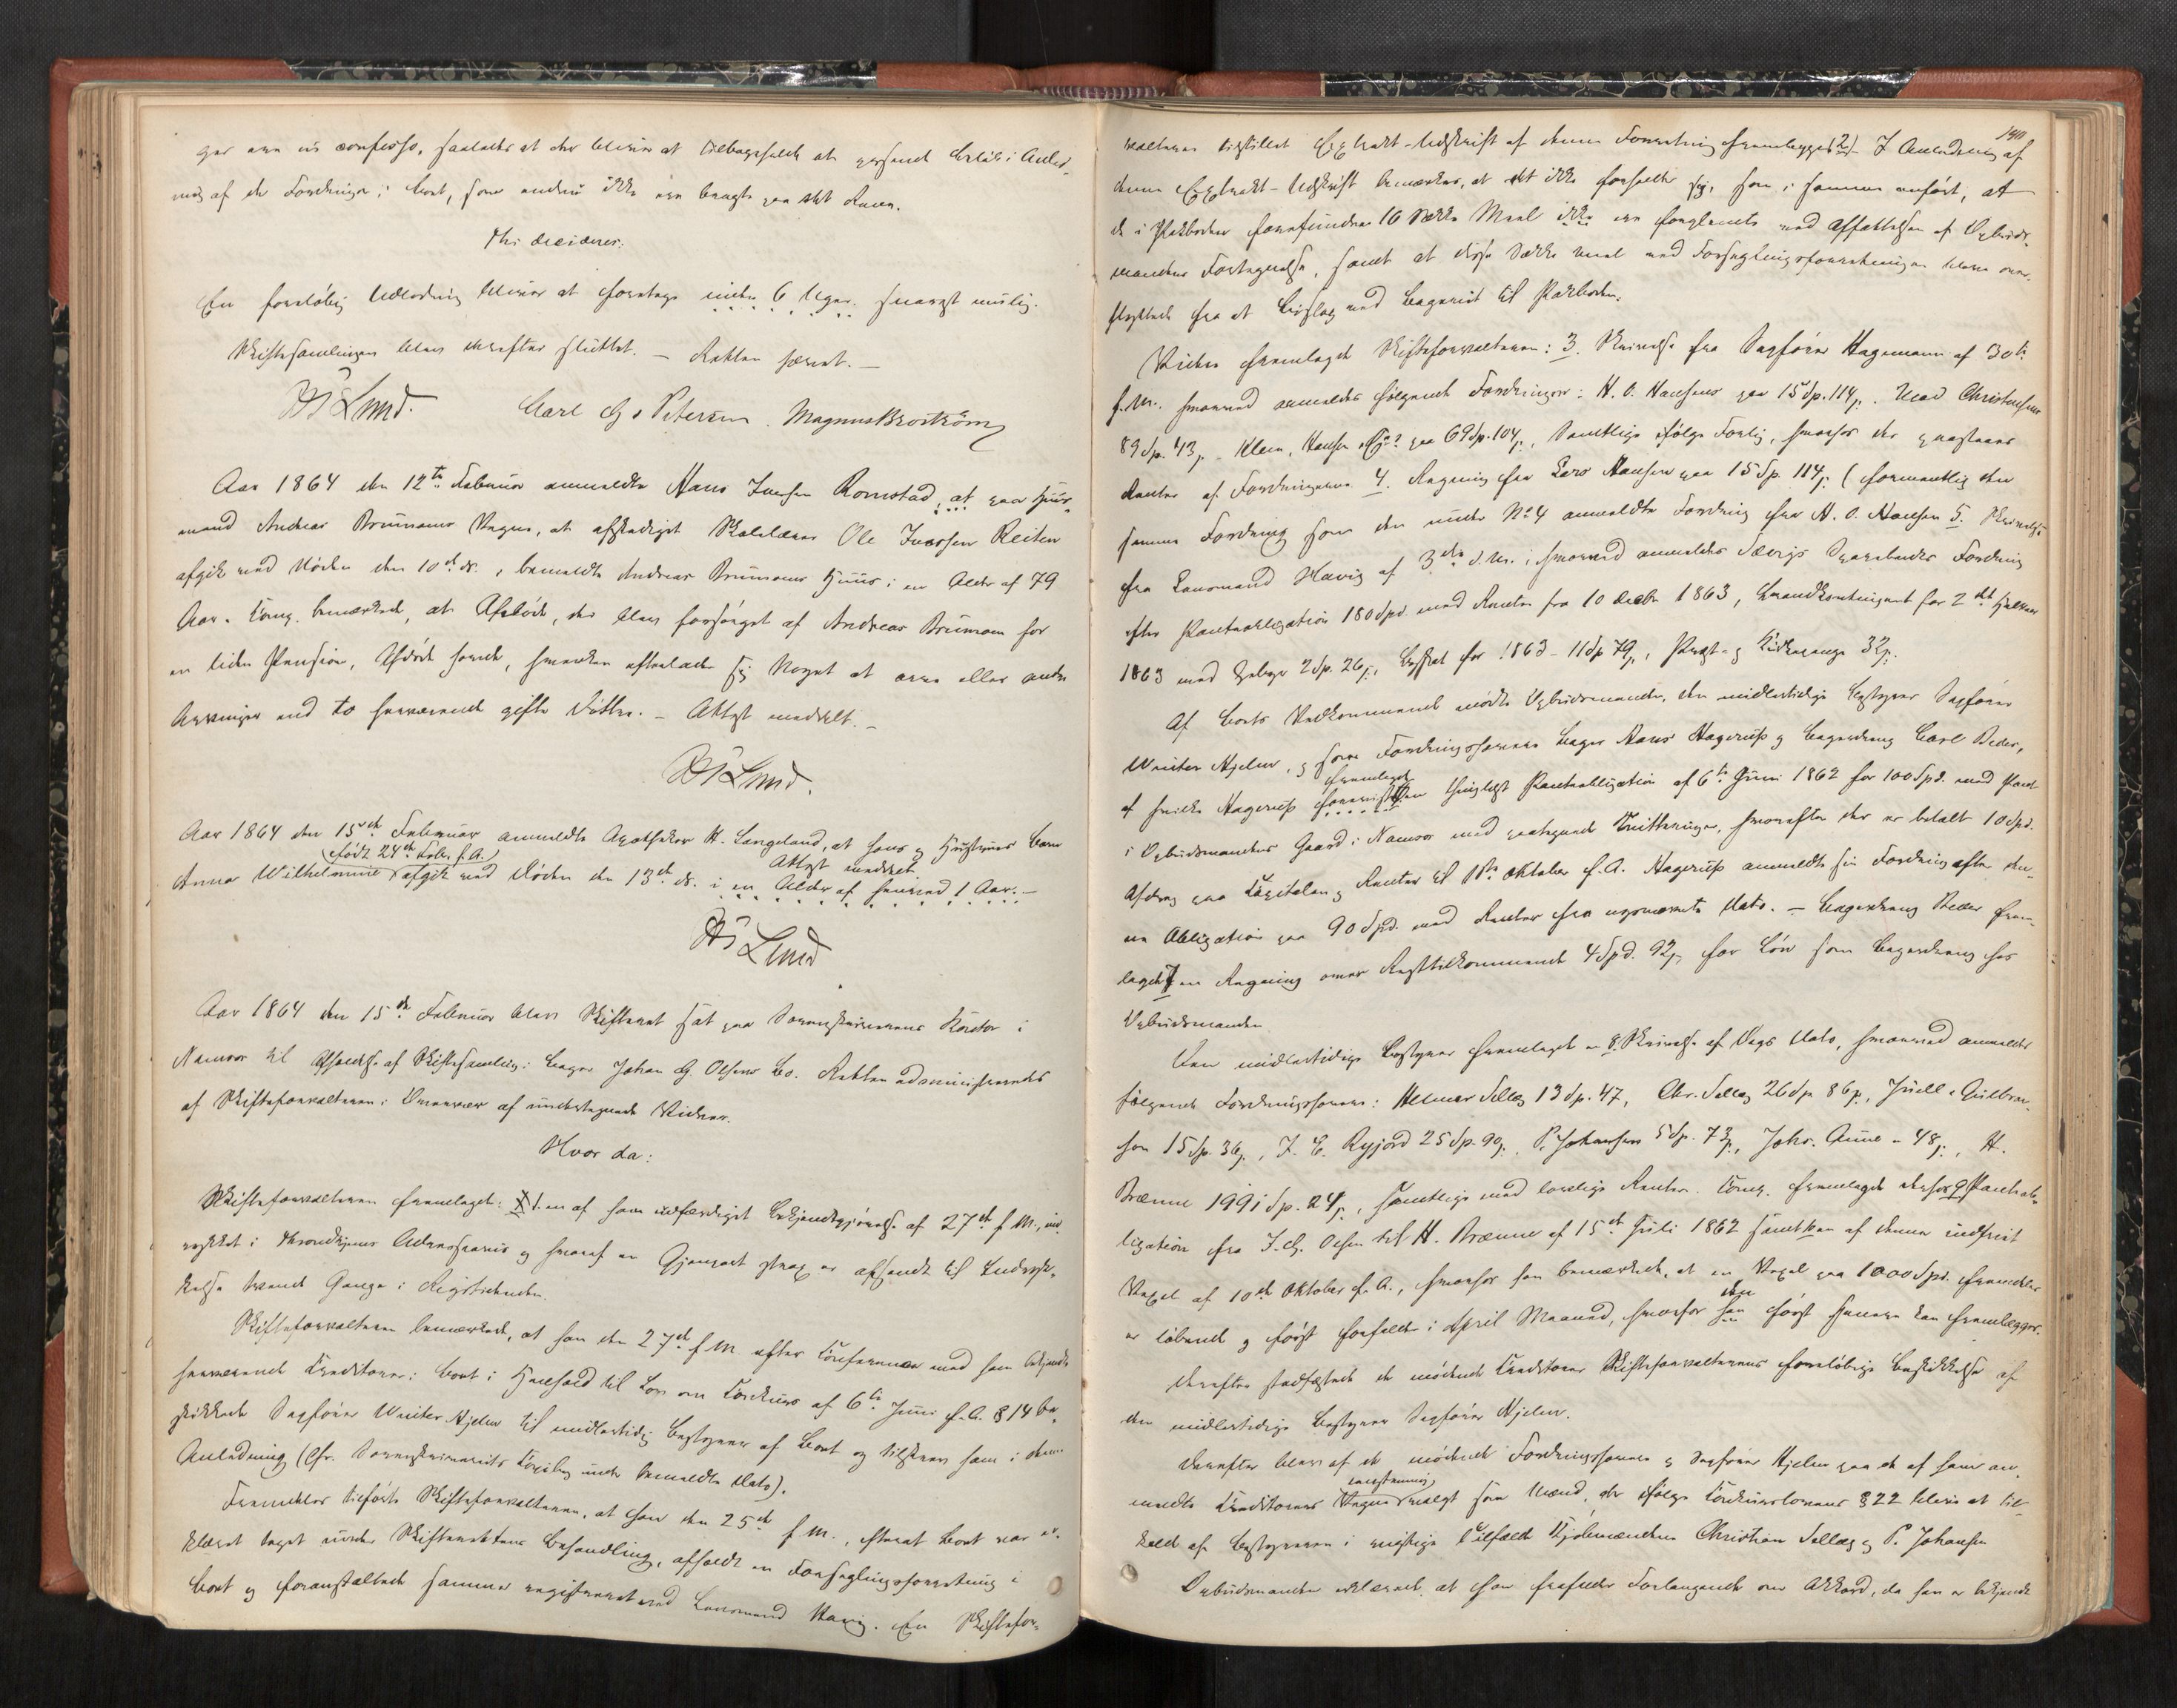 gar an in confesso, saaledes at der bliver at tilbageholde et passende Beløb i Anled-
ning af de Fordringer i Boet, som endnu ikke ere bragte paa det Rene.
Thi decideres:
En foreløbig Udlodning bliver at foretage inden 6 Uger. snarest mulig.
Skiftesamlingen blev derefter sluttet. – Retten hævet. –
Lund. Carl Petersen. Magnus Broström
Aar 1864 den 12te Februar anmeldte Hans Iversen Romstad, at paa Huus-
mand Andreas Brumoens Vegne, at afskediget Skolelærer Ole Iversen Reiten
afgik ved Døden den 10de ds. i bemeldte Andreas Brumoens Huus i en Alder af 79
Aar. Comp. bemærkede, at Afdøde, der blev forsørget af Andreas Brumoen for
en liden Pension, Afdøde havde, hverken efterlader sig Noget at arve eller andre
Arvinger end to herværende gifte Døttre. – Attest meddelt. –
Lund.
Aar 1864 den 15de Februar anmeldte Apotheker H. Langeland, at hans og Hustrues Barn
(født 24de Febr. f. A.) Attest meddelt.
Anna Wilhelmine afgik ved Døden den 13de ds. i en Alder af henved 1 Aar. –
Lund
Aar 1864 den 15de Februar blev Skifteret sat paa Sorenskriverens Kontor i
Namsos til Afholdelse af Skiftesamling i Bager Johan G. Olsens Bo. Retten administreredes
af Skifteforvalteren i Overvær af undertegnede Vidner.
Hvor da:
Skifteforvalteren fremlagde: 1. en af ham udfærdiget Bekjendtgjørelse af 27de f. M., ind-
rykket i Throndhjems Adresseavis og hvoraf en Gjenpart strax er afsendt til Indryk-
kelse trende Gange i Rigstidenden.
Skifteforvalteren bemærkede, at han den 27de f. M. efter Conference med ham bekjendte
herværende Creditorer i Boet i Henhold til Lov om Konkurs af 6te Juni f. A. § 14 be-
skikkede Sagfører Winter Hjelm til midlertidig Bestyrer af Boet og tilskrev ham i denne
Anledning (Cfr. Sorenskriveriets Copibog under bemeldte Dato).
Fremdeles tilførte Skifteforvalteren, at han den 25de f. M., efterat Boet var er-
klæret taget under Skifterettens Behandling, afholdt en Forseglingsforretning i
Boet og foranstaltede samme registreret ved Lensmand Havig. En Skiftefor-
190
valteren tilstillet Extrakt-Udskrift af denne Forretning fremlægges 2). I Anledning af
denne Extrakt-Udskrift bemærkes, at det ikke forholder sig, som i samme anført, at
de i Pakboden forefundne 16 Sække Meel ikke ere forglemte ved Affattelsen af Opbuds-
mandens Fortegnelse, samt at disse Sække Meel ved Forseglingsforretningen bleve over-
flyttede fra et Bislag ved Bageriet til Pakboden.
Videre fremlagde Skifteforvalteren: 3. Skrivelse fra Sagfører Hagemann af 30te
f. M. hvorved anmeldes følgende Fordringer: H. O. Hansens paa 15 Sp. 114 ß. Uead Christensens
89 Sp. 43 ß. Klem, Hansen & Co. paa 69 Sp. 104 ß., Samtlige ifølge Forlig, hvorfor der paastaaes
Renter af Fordringerne. 4. Regning fra Lars Hansen paa 15 Sp. 114 ß (formentlig den
samme Fordring som den under No 4 anmeldte Fordring fra H. O. Hansen. 5. Skrivelse
fra Lensmand Havig af 3die d. M., hvorved anmeldes Særigs Sparebanks Fordring
efter Pantobligation 180 Spd. med Renter fra 10 Decbr 1863, Brandkontingent for 2det Halvaar
1863 med Gebyr 2 Sp. 26 ß., Byskat for 1863 – 11 Sp. 79 ß., Præste- og Kirkepenge 32 ß.
Af Boets Vedkommende mødte Opbudsmanden, den midlertidige Bestyrer Sagfører
Winter Hjelm, og som Fordringshavere Bager Hans Hagerup og Bagerdreng Carl Beder,
fremlagde
af hvilke Hagerup foreviste en thinglæst Pantobligation af 6te Juni 1862 for 100 Spd. med Pant
i Opbudsmandens Gaard i Namsos med paategnede Qvitteringer, hvorefter der er betalt 10 Spd.
Afdrag paa Capitalen og Renter til 11te Oktober f. A. Hagerup anmeldte sin Fordring efter den-
ne Obligation paa 90 Spd. med Renter fra nysnævnte Dato. – Bagerdreng Beder frem-
lagde 7 en Regning over Resttilkommende 4 Spd. 92 ß for Løn som Bagerdreng hos
Opbudsmanden
Den midlertidige Bestyrer fremlagde en 8. Skrivelse af Dags Dato, hvorved anmeldes
følgende Fordringshavere: Helmer Sellæg 13 Sp. 47, Chr. Sellæg 26 Sp. 86 ß., Juell & Gulbran-
sen 15 Sp. 36 ß., J. E. Ryjord 25 Sp. 90 ß., P. Johansen 5 Sp. 73 ß., Johs. Aune – 48 ß., H.
Brænne 1991 Sp. 24 ß., samtlige med lovlige Renter. Comp. fremlagde derhos 9 Pantob-
ligation fra J. G. Olsen til H. Brænne af 15de Juli 1862 samt en af denne indfriet
Vexel af 10de Oktober f. A., hvorhos han bemærkede, at en Vexel paa 1000 Spd. fremdeles
den
er løbende og først forfalder i April Maaned, hvorfor han først senere kan fremlægges.
Derefter stadfæstede de mødende Creditorer Skifteforvalterens foreløbige Beskikkelse af
den midlertidige Bestyrer Sagfører Hjelm.
Derefter blev af de mødende Fordringshavere og Sagfører Hjelm paa de af ham an-
meldte Creditorers Vegne valgt som Mænd, der ifølge Konkurslovens § 22 blive at til-
kalde af Bestyreren i vigtige Tilfælde Kjøbmændene Christian Sellæg og P. Johansen
Opbudsmanden erklærede, at han frafalder Forlangende om Akkord, da han er bekjendt